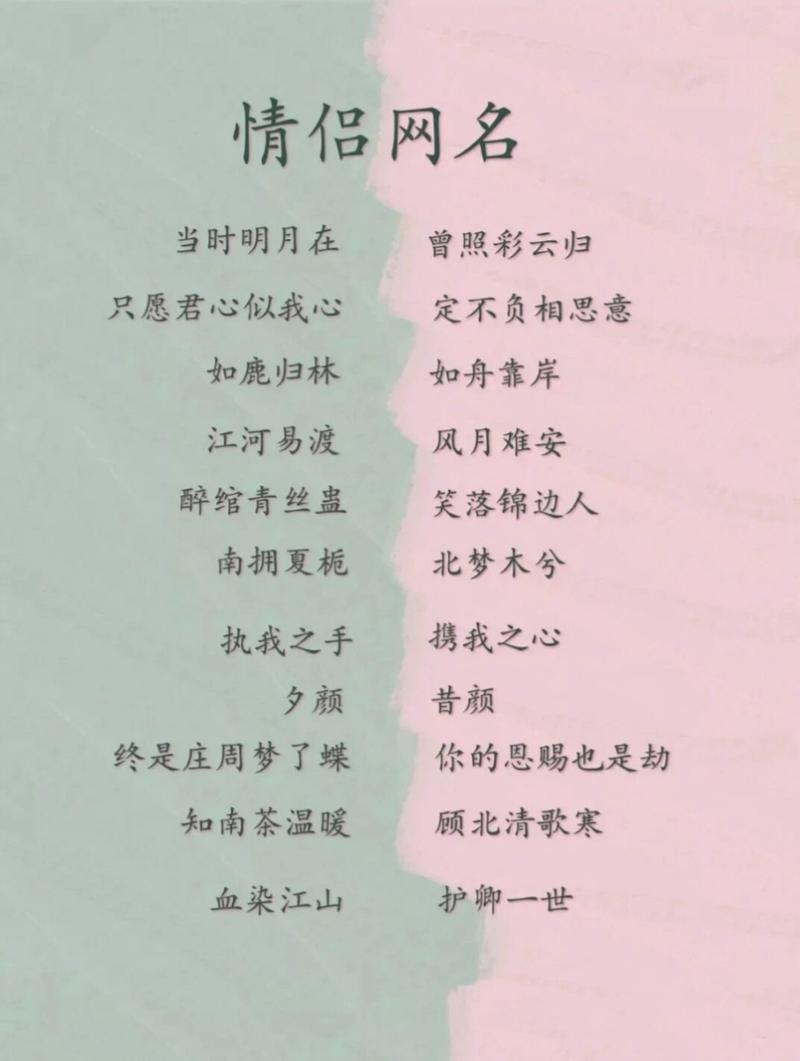 情侣网名
当时明月在 曾照彩云归
只愿君心似我心 定不负相思意
如鹿归林 如舟靠岸
江河易渡 风月难安
醉绾青丝蛊 笑落锦边人
南拥夏栀 北梦木兮
执我之手 携我之心
夕颜 昔颜
终是庄周梦了蝶 你的恩赐也是劫
知南茶温暖 顾北清歌寒
血染江山 护卿一世